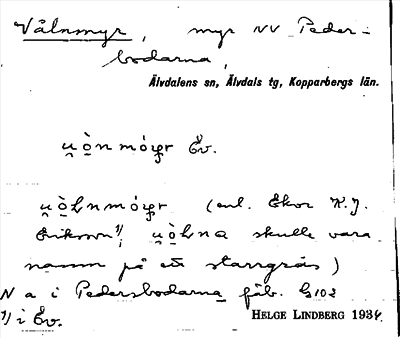 Vålnmyr, myr NV Peder-
bodarna,
Älvdalens sn, Älvdals tg, Kopparbergs län.
u̯ò̲nmóɣr Äv.
u̯ò̲Lnmóɣr (enl. Ekor K.J.
Eriksson 1/, u̯ò̲Lna skulle vara
namn på ett starrgräs)
N a i Pedersbodarna fäb. G102
1/ i Äv.
HELGE LINDBERG 1934.